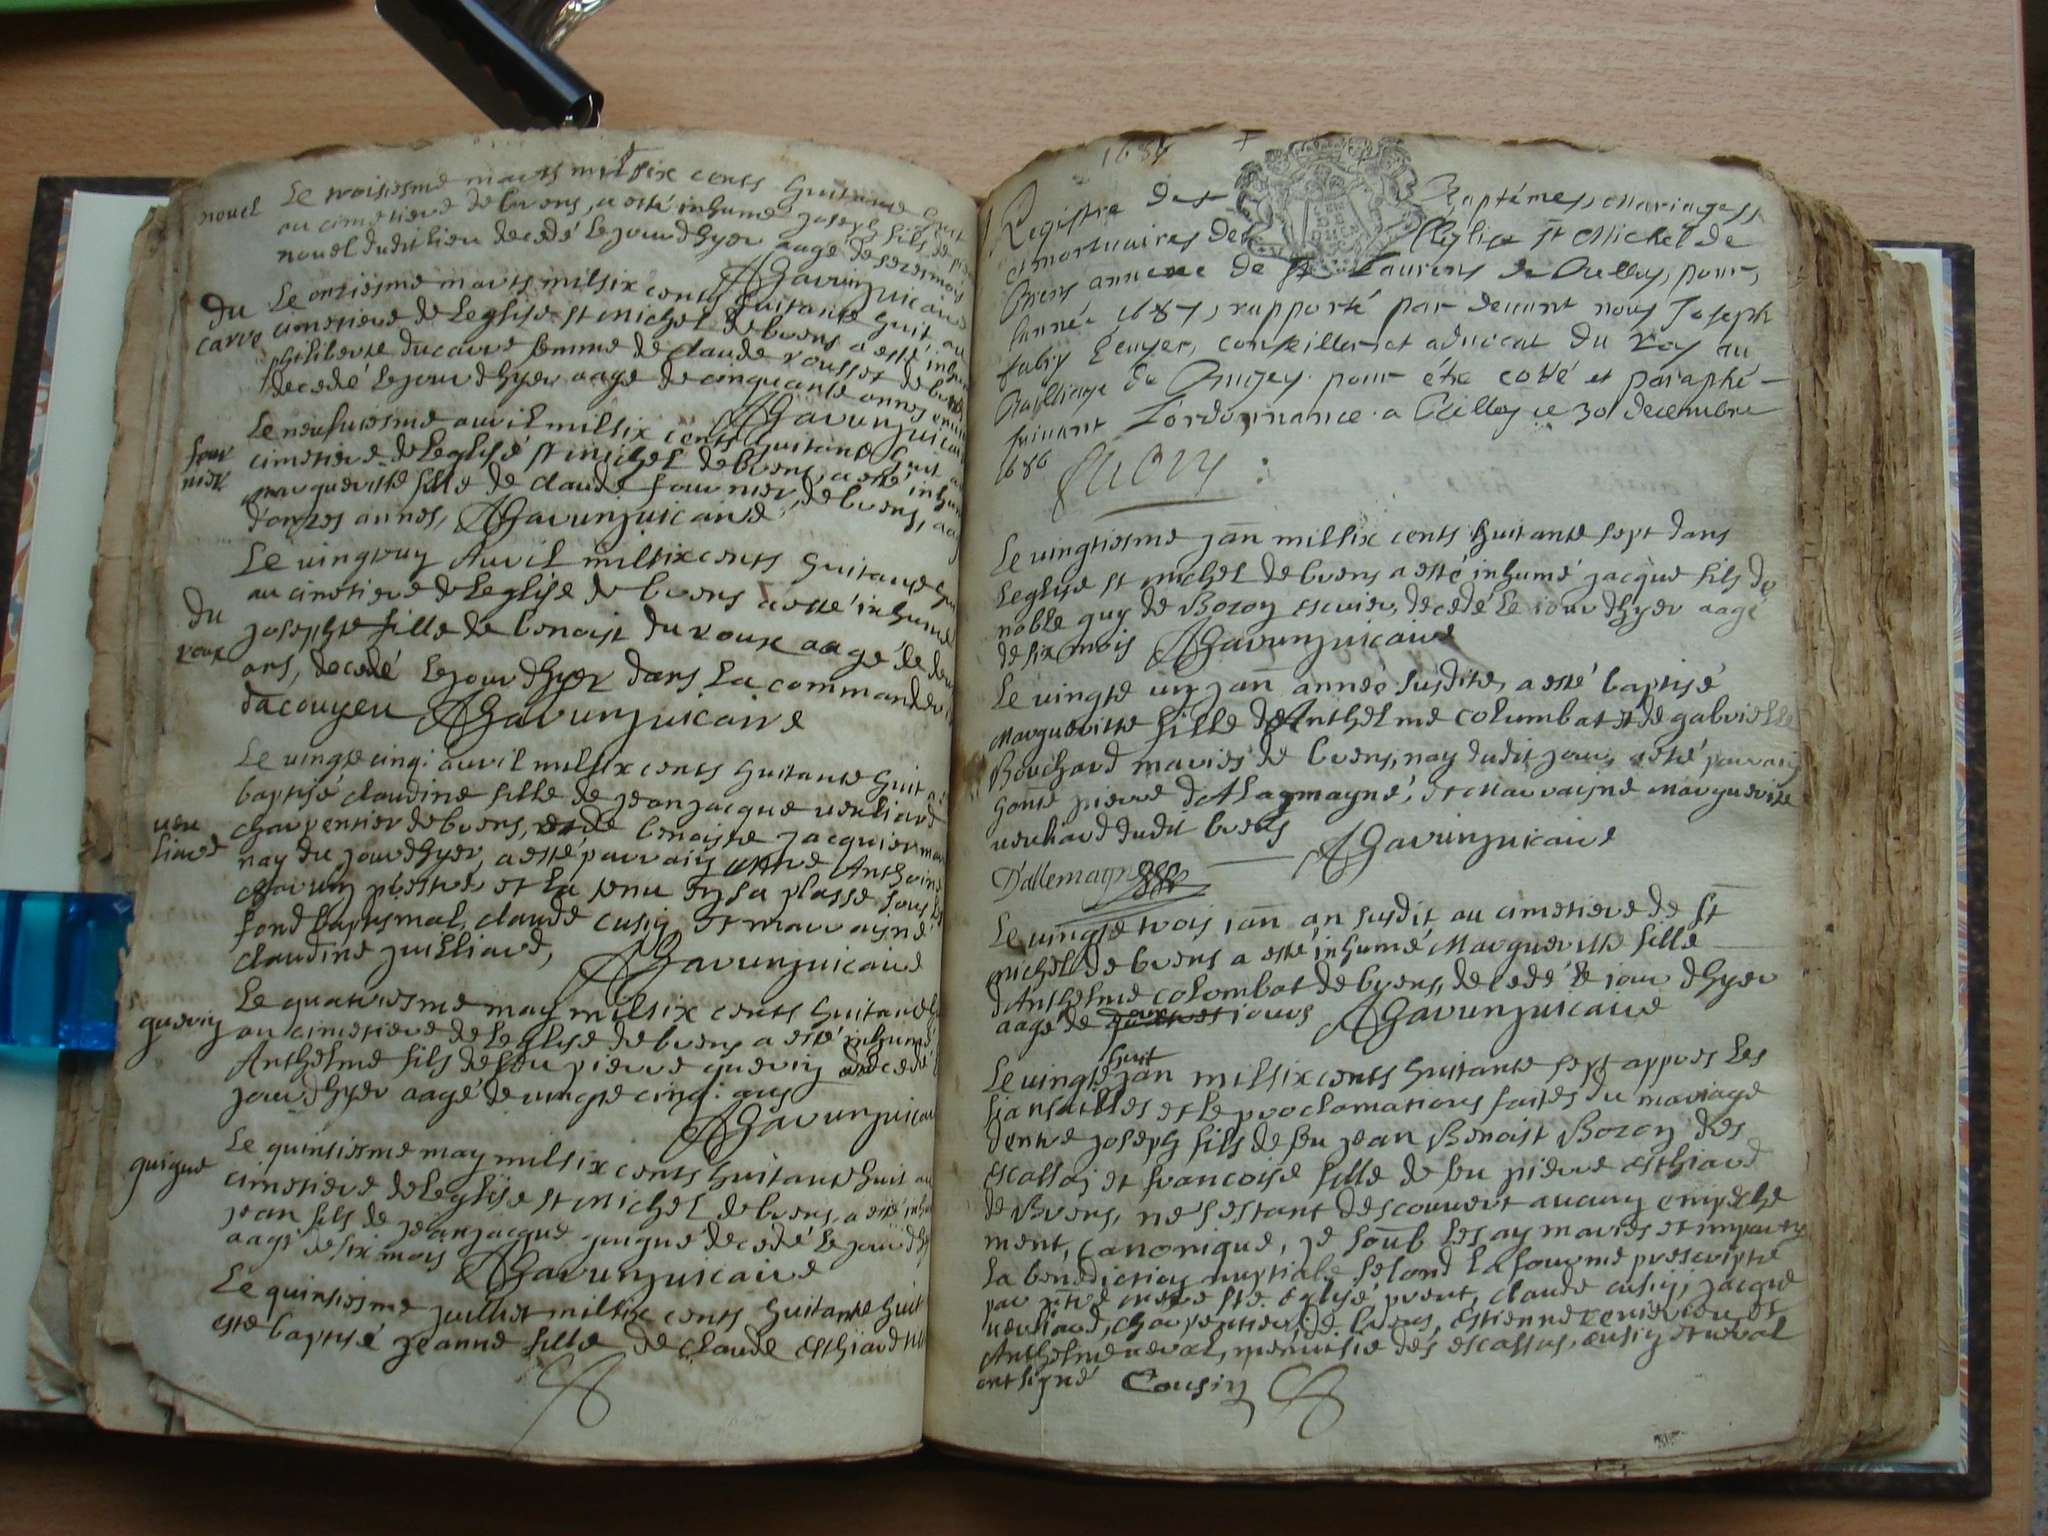 nouel
Le troisiesme mars mil six cents huitante huit
au cimetiere de brens, a esté inhumé joseph fils de
nouel dudit lieu decedé le jour dhyer aagé de seze mois
AGavunjuicaire
du
carre
Le onziesme mars mil six cents huitante huit au
cimetiere de Leglise st michel de brens a esté inhu
philiberte ducarre femme de claude rousset de brens
decedé le jour dhyer aage de cinquante annes
Le neufuiesme auril mil six cents huitante huit au
four
nier
cimetiere de Leglise st michel de brens, a esté inhu
margueritte fille de claude fournier, de brens, aag
d'onzes annes,
Le vingt uy Auril mil six cents huitante hui
au cimetiere de Leglise de brens a esté inhumé
du
roux
josephte fille de benoist du roux aagé de deux
ans, decedé le jour dhyer dans La commanderi
dacoüyeu
Le vingte cinq: auril mil six cents huitante huit a
baptisé claudine fille de jean jacque verliard
ver
liard
charpentier de brens, et de benoiste jacquier
nay du jour dhyer, a esté parraiy Anthoine
et la tenu ey sa plasse sous les
fond baptismal, claude cusiy et marrayne
claudine juilliard,
Le quatriesme may mil six cents huitante
gueriy
au cimetiere de Leglise de brens a esté inhumé
Anthelme fils de feu pierre gueriy decedé
jour dhyer aagé de vingte cinq: ans
Le quinsiesme may mil six cents huitante huit au
guigue
cimetiere de Leglise st michel de brens, a esté inhu
jean fils de jean jacque guigue decedé Le jour dhy
aagé de six mois
Le quinsiesme juillet mil six cents huitante huit
esté baptisé jeanne fille de claude Esthiard
1687
Registre des Baptémes, mariages
et mortuaires de l'église st Michel de
Brens annexe de st Laurens de Belley, pour
lannée 1687, rapporté par deuant nous Joseph
fabry Ecuyer, conseiller et aduocat du roy au
Bailliage de Bugey pour étre cotté et paraphé
suiuant l'ordonnance a Belley ce 30 decembre
1686
Le vingtiesme jan mil six cents huitante sept dans
Leglise st michel de brens a esté inhumé jacque fils de
noble guy de Bozoy escuier, decedé le jour dhyer aagé
de six mois
Le vingte uy jan année susdite, a esté baptisé
Margueritte fille de Anthelme columbat et de gabrielle
Bouchard mariés de brens, nay dudit jour, a esté parraiy
pierre d'Alagmagne, et Marrayne Marguerite
verliard dudit brens
D'allemagne
Le vingte trois jan an susdit au cimetiere de st
michel de brens a esté inhumé Marguerite fille
d'Anthelme colombat de brens, decedé le jour dhyer
aagé de jours
Le vingte huit jan mil six cents huitante sept appres les
fiansailles et le proclamations faites du mariage
dentre joseph fils de feu jean Benoist Bozoy des
Escassas et francoise fille de feu pierre Esthiard
de Brens, ne s'estant descouuert aucuy empeche
ment, canonique, je soub les ay mariés et imparty
La benediction nuptiale selond La fourme prescripte
par nre mere ste. église, prent, claude cusiy, jacque
verliard, charpentier de brens, Estienne et
Anthelme neral, des escassas, cusiy et neral
ont signé Cousin